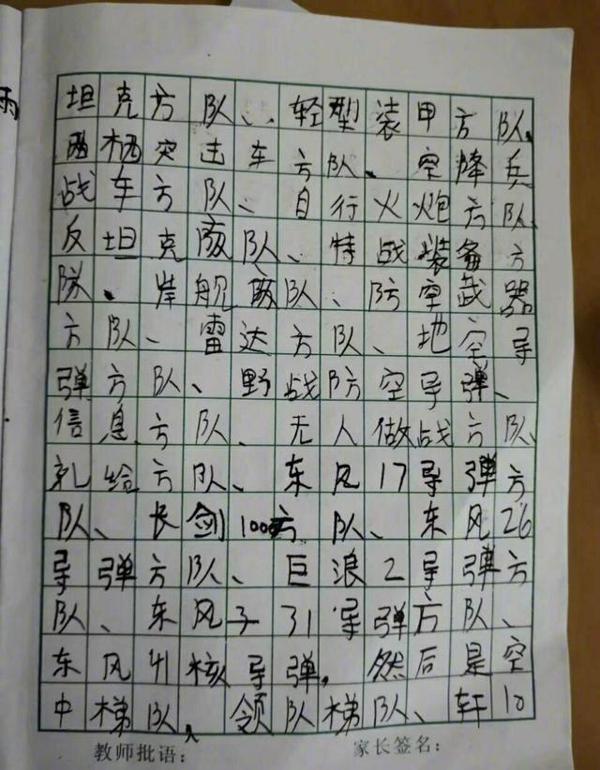 坦克方队、轻型装甲方队、
两栖突击车方队、空降兵
战车方队、自行火炮方队、
反坦克方队、特战装备方
队、岸舰方队、防空武器
方队、雷达方队、地空导
弹方队、野战防空导弹、
信息方队、无人做战方队、
方队、东风17导弹方
队、长剑100方队、东风26
导弹方队、巨浪2导弹方
队、东风31导弹方队、
东风41核导弹,然后是空
中梯队,领队梯队、轩10
教师批语: 家长签名: